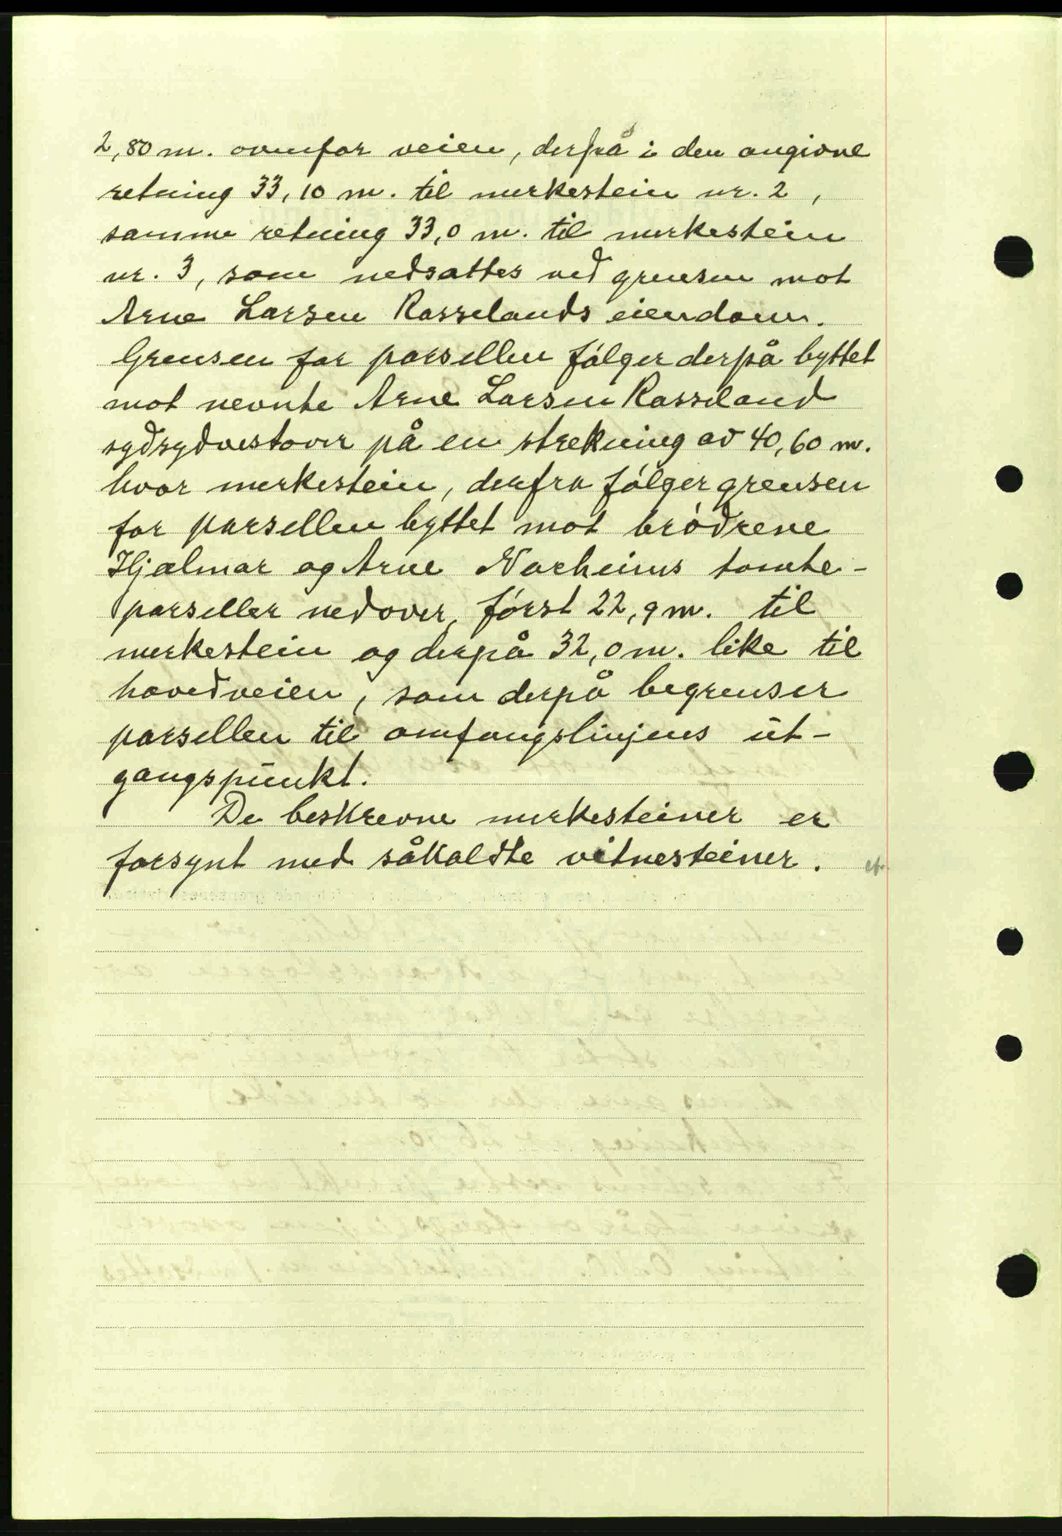 2,80 m. ovenfor veien, derpå i den angivne
retning 33,10 m. til merkestein nr. 2,
samme retning 33,0 m. til merkestein
nr. 3, som nedsattes ved grensen mot
Arne Larsen Rosselands eiendom.
Grensen for parsellen følger derpå byttet
mot nevnte Arne Larsen Rosseland
sydsydvestover på en strekning av 40,60 m.
hvor merkestein, derfra følger grensen
for parsellen byttet mot brødrene
Hjalmar og Arne Norheims tomte-
parseller nedover, først 22,9 m. til
merkestein og derpå 32,0 m. like til
hovedveien, som derpå begrenser
parsellen til omfangslinjens ut-
gangspunkt.
De beskrevne merkesteiner er
forsynt med såkaldte vitnesteiner.